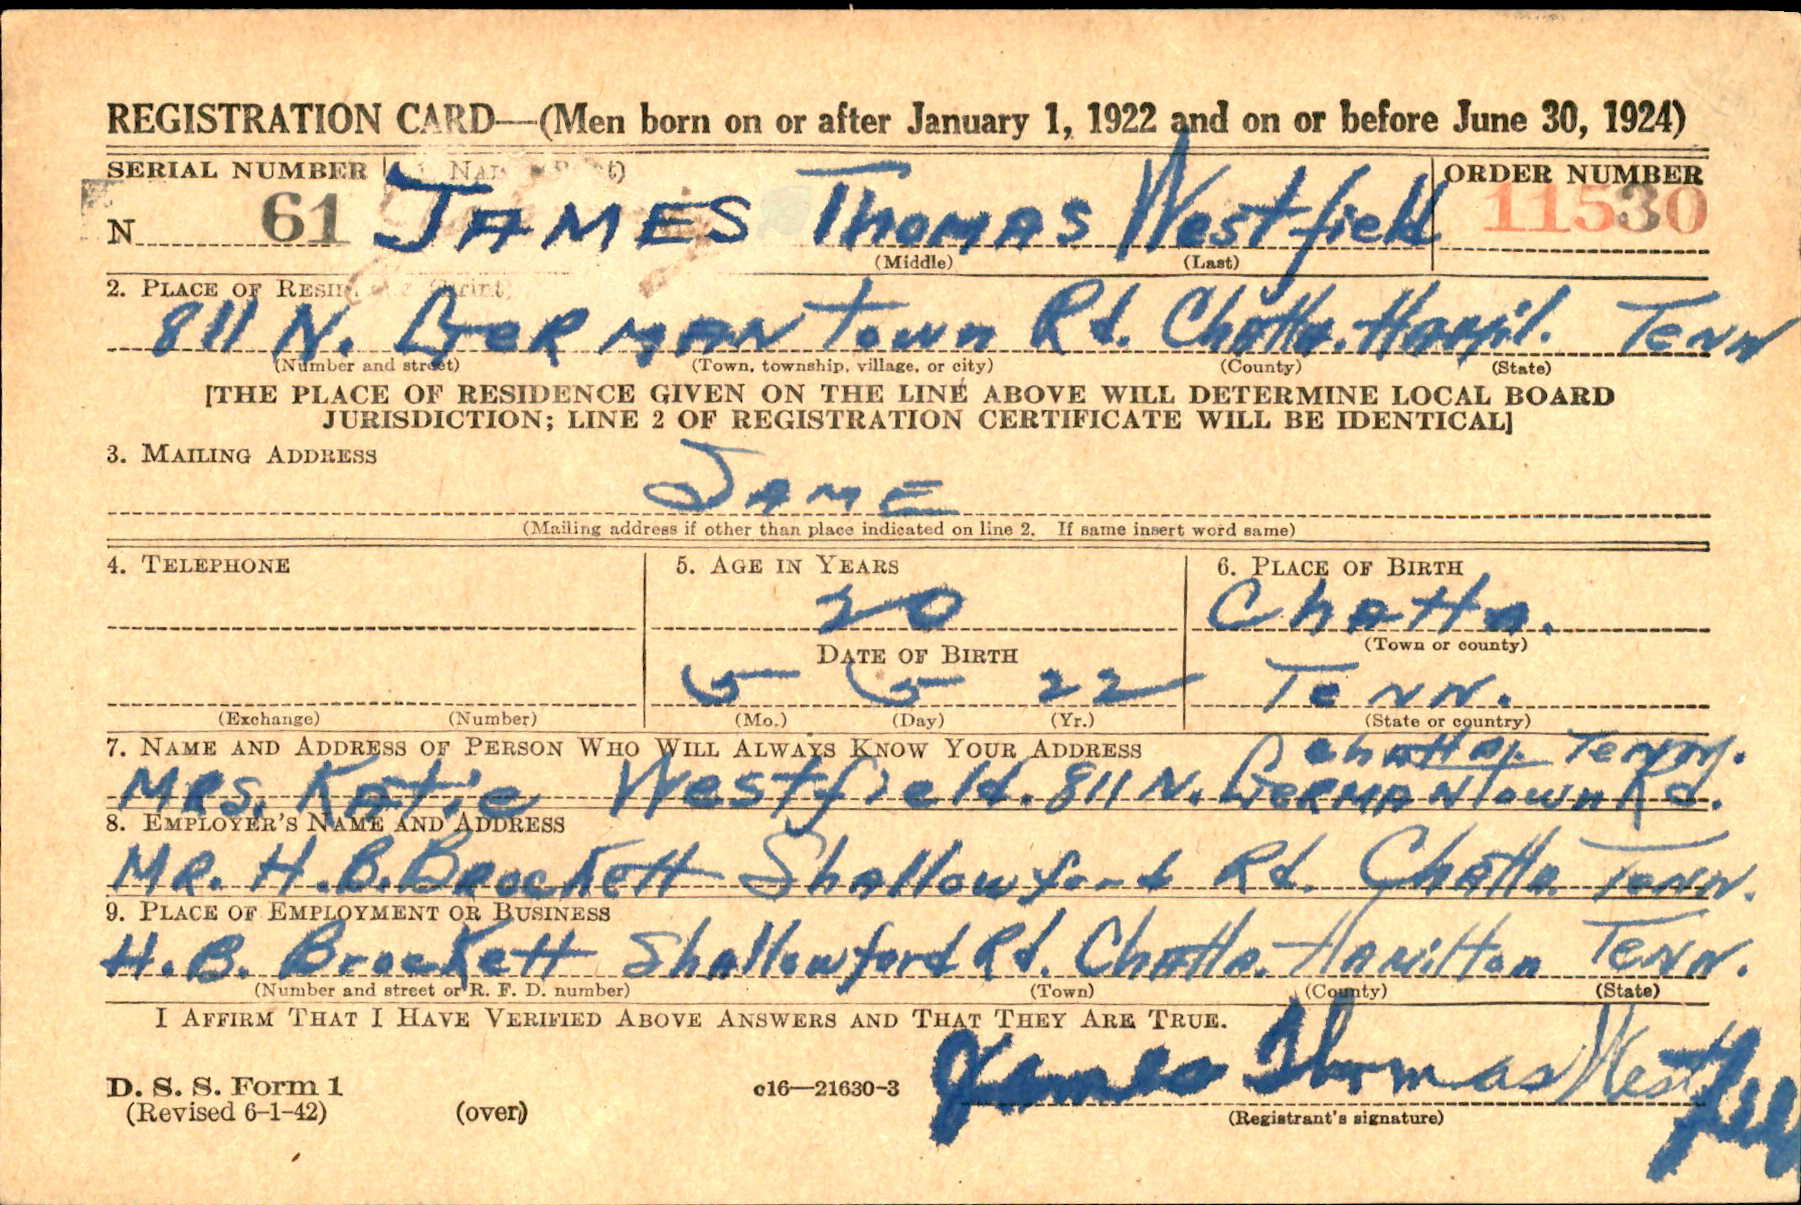 REGISTRATION CARD—(Men born on or after January 1, 1922 and on or before June 30, 1924)
SERIAL NUMBER ORDER NUMBER
N 61 JAMES Thomas Westfield 11530
(Middle) (Last)
2. PLACE OF
811 N. GERMANTown Rd. Chatta. Hamil. Tenn
(Number and street) (Town, township, village, or city) (County) (State)
[THE PLACE OF RESIDENCE GIVEN ON THE LINE ABOVE WILL DETERMINE LOCAL BOARD
JURISDICTION; LINE 2 OF REGISTRATION CERTIFICATE WILL BE IDENTICAL]
3. MAILING ADDRESS
SAME
(Mailing address if other than place indicated on line 2. If same insert word same)
4. TELEPHONE 5. AGE IN YEARS 6. PLACE OF BIRTH
20 Chatta.
(Town or county)
DATE OF BIRTH
5 5 22 Tenn.
(Exchange) (Number) (Mo.) (Day) (Yr.) (State or country)
7. NAME AND ADDRESS OF PERSON WHO WILL ALWAYS KNOW YOUR ADDRESS Chatta. Tenn.
MRS. Katie Westfield. 811 N. GERMANTown Rd.
8. EMPLOYER'S NAME AND ADDRESS
MR. H.B. Brockett Shallowford Rd. Chatta Tenn.
9. PLACE OF EMPLOYMENT OR BUSINESS
H.B. Brockett Shallowford Rd. Chatta. Hamilton Tenn.
(Number and street or R. F. D. number) (Town) (County) (State)
I AFFIRM THAT I HAVE VERIFIED ABOVE ANSWERS AND THAT THEY ARE TRUE.
James Thomas Westfield
D. S. S. Form 1 c16—21630-3
(Revised 6-1-42) (over) (Registrant's signature)